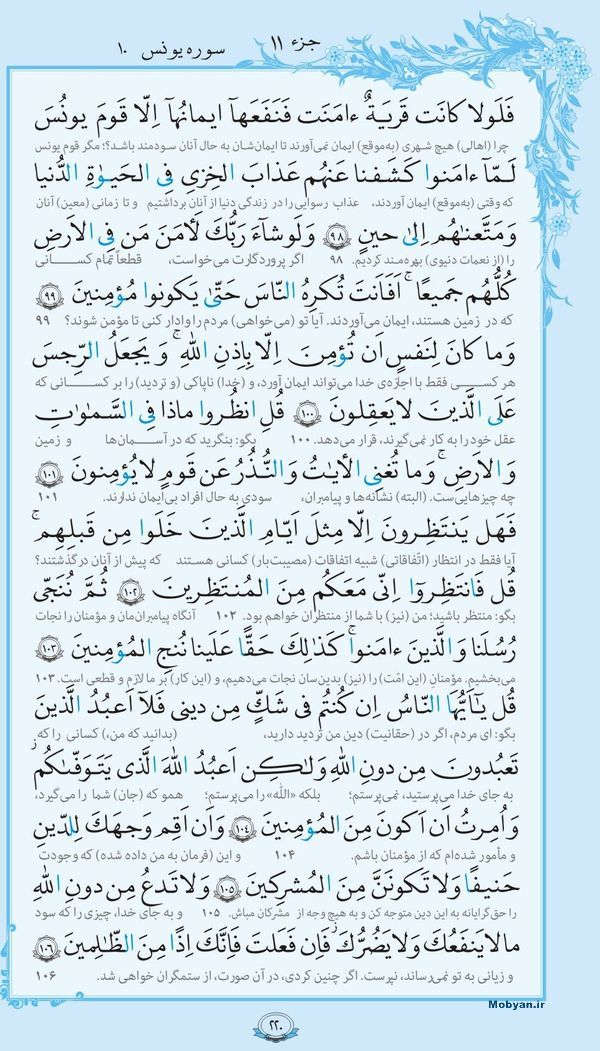 جزء ۱۱ سوره یونس ۱۰
فَلَولا كانَت قَريَةٌ ءامَنَت فَنَفَعَها ايمانُها اِلّا قَومَ يونُسَ
چرا (اهالی) هیچ شهری (به‌موقع) ایمان نمی‌آورند تا ایمان‌شان به حال آنان سودمند باشد؟! مگر قوم یونس
لَمّا ءامَنوا كَشَفنا عَنهُم عَذابَ الخِزىِ فِى الحَيوٰةِ الدُّنيا
که وقتی (به‌موقع) ایمان آوردند، عذاب رسوایی را در زندگی دنیا از آنان برداشتیم و تا زمانی (معین) آنان
وَمَتَّعناهُم اِلىٰ حينٍ ﴿۹۸﴾ وَلَو شاءَ رَبُّكَ لَأمَنَ مَن فِى الاَرضِ
را (از نعمات دنیوی) بهره‌مند کردیم. ۹۸ اگر پروردگارت می‌خواست، قطعاً تمام کسانی
كُلُّهُم جَميعًا ۚ اَفَاَنتَ تُكرِهُ النّاسَ حَتّىٰ يَكونوا مُؤمِنينَ ﴿۹۹﴾
که در زمین هستند، ایمان می‌آوردند. آیا تو (می‌خواهی) مردم را وادار کنی تا مؤمن شوند؟ ۹۹
وَما كانَ لِنَفسٍ اَن تُؤمِنَ اِلّا بِاِذنِ اللهِ ۚ وَيَجعَلُ الرِّجسَ
هر کسی فقط با اجازه‌ی خدا می‌تواند ایمان آورد، و (خدا) ناپاکی (و تردید) را بر کسانی که
عَلَى الَّذينَ لا يَعقِلونَ ﴿۱۰۰﴾ قُلِ انظُروا ماذا فِى السَّمٰوٰتِ
عقل خود را به کار نمی‌گیرند، قرار می‌دهد. ۱۰۰ بگو: بنگرید که در آسمان‌ها و زمین
وَالاَرضِ ۚ وَما تُغنِى الأيٰتُ وَالنُّذُرُ عَن قَومٍ لا يُؤمِنونَ ﴿۱۰۱﴾
چه چیزهایی‌ست. (البته) نشانه‌ها و پیامبران، سودی به حال افراد بی‌ایمان ندارند. ۱۰۱
فَهَل يَنتَظِرونَ اِلّا مِثلَ اَيّامِ الَّذينَ خَلَوا مِن قَبلِهِم ۚ
آیا فقط در انتظار (اتّفاقاتی) شبیه اتفاقات (مصیبت‌بار) کسانی هستند که پیش از آنان درگذشتند؟
قُل فَانتَظِروا اِنّى مَعَكُم مِنَ المُنتَظِرينَ ﴿۱۰۲﴾ ثُمَّ نُنَجّى
بگو: منتظر باشید؛ من (نیز) با شما از منتظران خواهم بود. ۱۰۲ آنگاه پیامبران‌مان و مؤمنان را نجات
رُسُلَنا وَالَّذينَ ءامَنوا ۚ كَذٰلِكَ حَقًّا عَلَينا نُنجِ المُؤمِنينَ ﴿۱۰۳﴾
می‌بخشیم. مؤمنان (این امّت) را (نیز) بدین‌سان نجات می‌دهیم، و (این کار) بر ما لازم و قطعی است. ۱۰۳
قُل يٰاَيُّهَا النّاسُ اِن كُنتُم فى شَكٍّ مِن دينى فَلا اَعبُدُ الَّذينَ
بگو: ای مردم، اگر در (حقانیت) دین من تردید دارید، (بدانید که من،) کسانی را که
تَعبُدونَ مِن دونِ اللهِ وَلٰكِن اَعبُدُ اللهَ الَّذى يَتَوَفّىٰكُم
به جای خدا می‌پرستید، نمی‌پرستم؛ بلکه «الله» را می‌پرستم؛ همو که (جان) شما را می‌گیرد،
وَاُمِرتُ اَن اَكونَ مِنَ المُؤمِنينَ ﴿۱۰۴﴾ وَاَن اَقِم وَجهَكَ لِلدّينِ
و مأمور شده‌ام که از مؤمنان باشم. ۱۰۴ و این (فرمان به من داده شده) که وجودت
حَنيفًا وَلا تَكونَنَّ مِنَ المُشرِكينَ ﴿۱۰۵﴾ وَلا تَدعُ مِن دونِ اللهِ
را حق‌گرایانه به این دین متوجه کن و به هیچ وجه از مشرکان مباش. ۱۰۵ و به جای خدا، چیزی را که سود
ما لا يَنفَعُكَ وَلا يَضُرُّكَ ۖ فَاِن فَعَلتَ فَاِنَّكَ اِذًا مِنَ الظّالِمينَ ﴿۱۰۶﴾
و زیانی به تو نمی‌رساند، نپرست. اگر چنین کردی، در آن صورت، از ستمگران خواهی شد. ۱۰۶
۲۲۰
Mobyan.ir